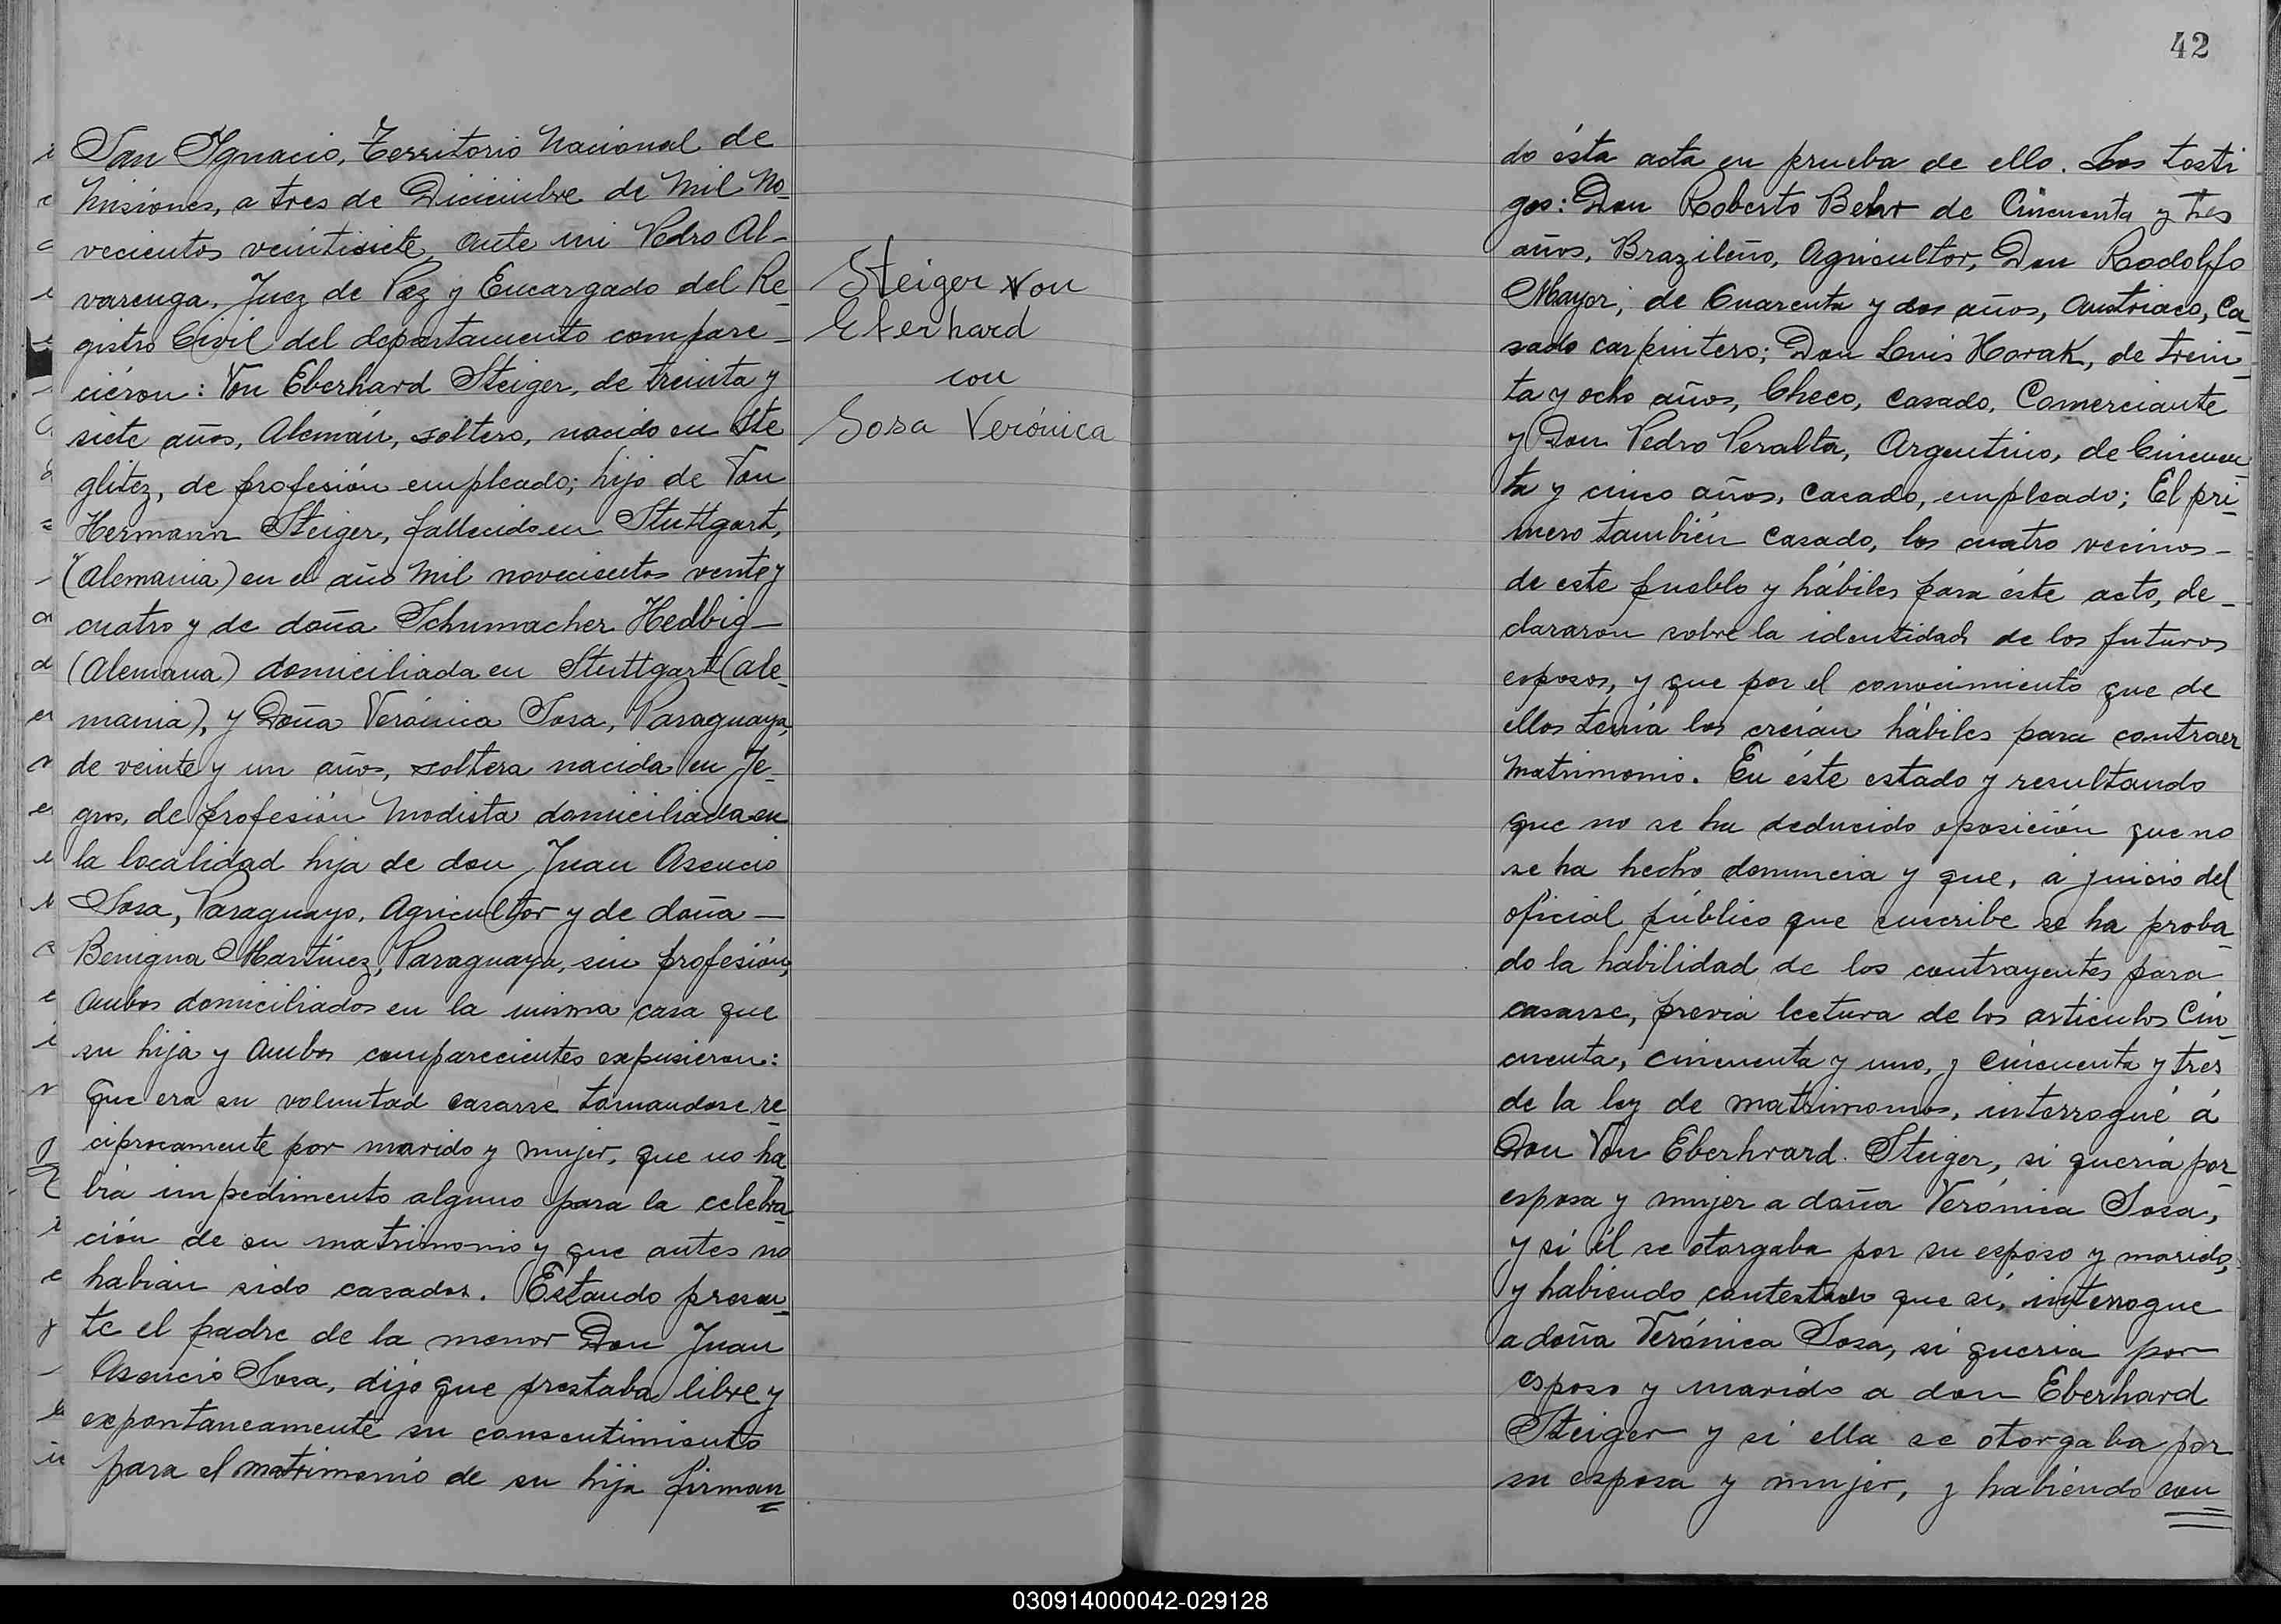 San Ignacio, Territorio Nacional de
Misiones, a tres de Diciembre de Mil No-
vecientos veintisiete, ante mi Pedro Al-
varenga, Juez de Paz y Encargado del Re-
gistro Civil del departamento compare-
cieron: Von Eberhard Steiger, de treinta y
siete años, Alemán, soltero, nacido en Ste
glitez, de profesión empleado; hijo de Von
Hermann Steiger, fallecido en Stuttgart,
(Alemania) en el año mil novecientos vente y
cuatro y de doña Schumacher Hedbig-
(Alemana) domiciliada en Stuttgart (Ale-
mania), y Doña Verónica Sosa, Paraguaya,
de veinte y un años, soltera nacida en Je-
gros, de profesión Modista domiciliada en
la localidad hija de don Juan Asencio
Sosa, Paraguayo, Agricultor y de doña -
Benigna Martínez, Paraguaya, sin profesión,
Ambos domiciliados en la misma casa que
su hija y Ambos comparecientes expusieron:
Que era su voluntad casarse tomandose re-
ciprocamente por marido y mujer, que no ha-
bia impedimento alguno para la celebra-
ción de su matrimonio y que antes no
habian sido casados. Estando presen-
te el padre de la menor Don Juan
Asencio Sosa, dijo que prestaba libre y
expontaneamente su consentimiento
para el matrimonio de su hija firman
Steiger Von
Eberhard
con
Sosa Verónica
42
do ésta acta en prueba de ello. Los testi
gos: Don Roberto Behr de Cincuenta y tres
años, Brazileño, Agricultor, Don Rodolfo
Mayer, de Cuarenta y dos años, Austriaco, Ca-
sado carpintero; Don Luis Horak, de trein-
ta y ocho años, Checo, Casado, Comerciante
y Don Pedro Peralta, Argentino, de Cincuen-
ta y cinco años, Casado, empleado; El pri-
mero también Casado, los cuatro vecinos-
de este pueblo y hábiles para éste acto, de-
clararon sobre la identidad de los futuros
esposos, y que por el conocimiento que de
ellos tenía los creían hábiles para contraer
Matrimonio. En éste estado y resultando
que no se ha deducido oposición que no
se ha hecho denuncia y que, á juicio del
oficial público que suscribe se ha proba-
do la habilidad de los contrayentes para
casarse, previa lectura de los articulos Cin-
cuenta, cincuenta y uno, y cincuenta y tres
de la ley de matrimonios, interrogué á
Don Von Eberhrard. Steiger, si quería por
esposa y mujer a doña Verónica Sosa,
y si él se otorgaba por su esposo y marido,
y habiendo contestado que sí, interrogue
a doña Verónica Sosa, si queria por
esposo y marido a don Eberhard
Steiger y si ella se otorgaba por
su esposa y mujer, y habiendo con
030914000042-029128